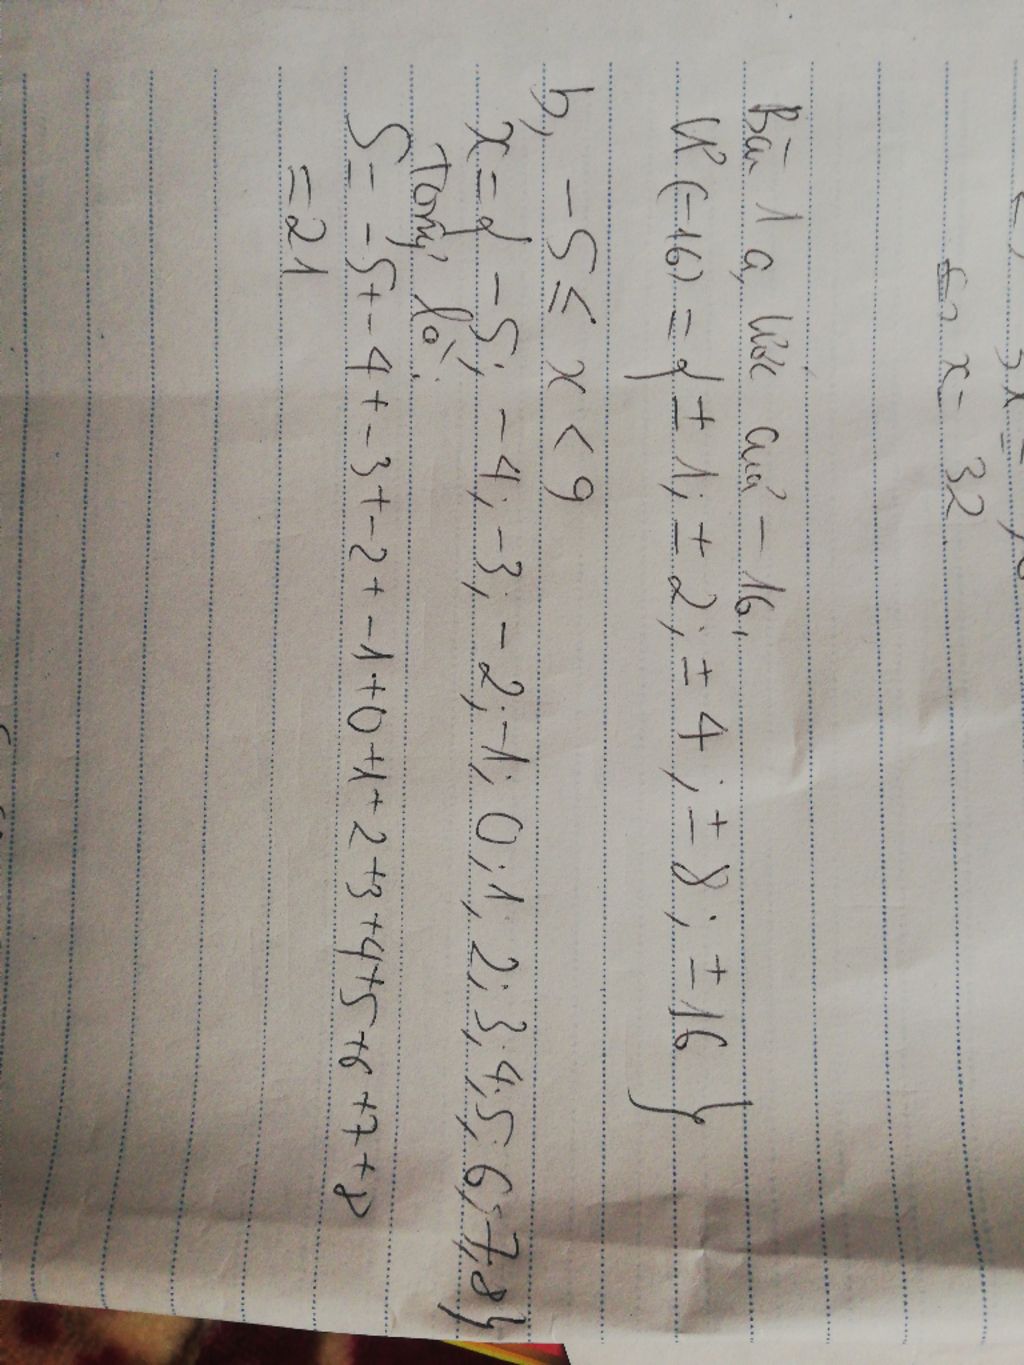 x = 32
Bài 1 a, Ước của -16.
Ư (-16) = { ± 1; ± 2; ± 4; ± 8; ± 16 }
b, -5 ≤ x < 9
x = { -5; -4; -3; -2; -1; 0; 1; 2; 3; 4; 5; 6; 7; 8 }
Tổng là:
S = -5 + -4 + -3 + -2 + -1 + 0 + 1 + 2 + 3 + 4 + 5 + 6 + 7 + 8
= 21